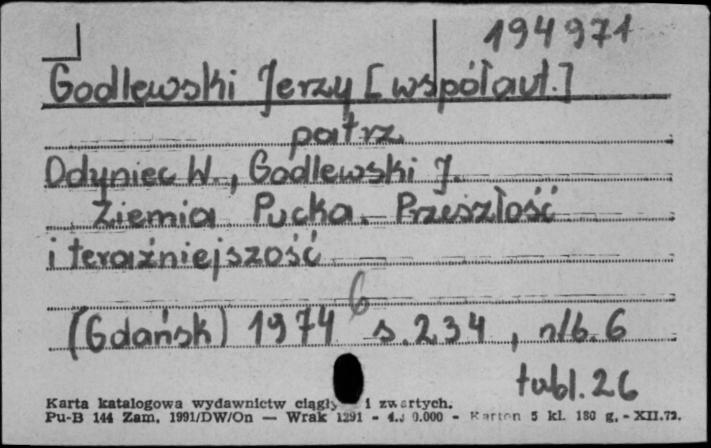 194971
Godlewski Jerzy [współaut.]
patrz
Odyniec W., Godlewski J.
Ziemia Pucka. Przeszłość
i teraźniejszość
6
(Gdańsk) 1974 s. 234, nlb. 6
tabl. 26
Karta katalogowa wydawnictw i zwartych.
Pu-B 144 Zam. 1991/DW/On — Wrak 1291 - Karton 5 kl. 180 g. - XII.72.